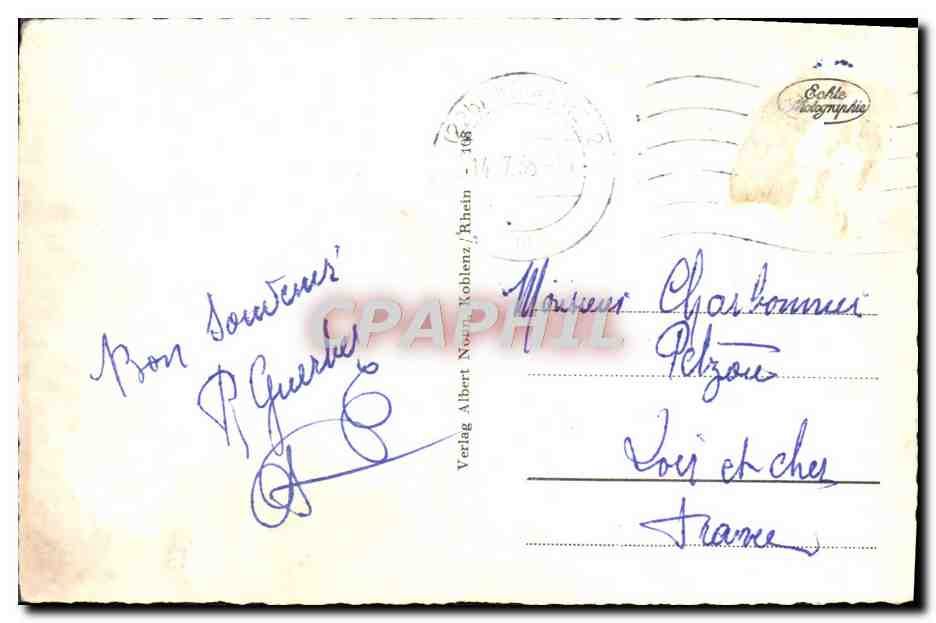 Echte
Photographie
14.7.
Bon Souvenir
R Guerbet
CPAPHIL
Verlag Albert Noon, Koblenz/Rhein - 108
Monsieur Charbonnier
Pelzou
Loir et cher
France